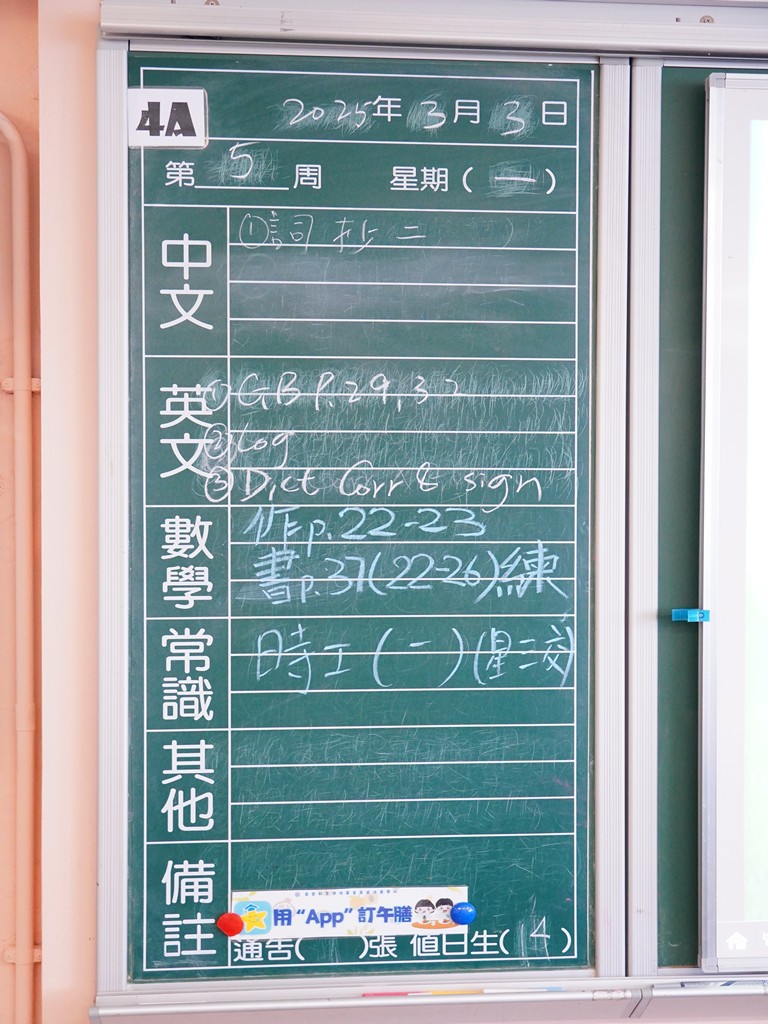 4A
2025年3月3日
第5周 星期(一)
中文
①詞抄二
英文
①GB P.29,32
②Log
③Dict Corr & sign
數學
作p.22-23
書p.37(22-26)練
常識
時工(一)(星三交)
其他
備註
用“App”訂午膳
通告( )張 值日生(4)